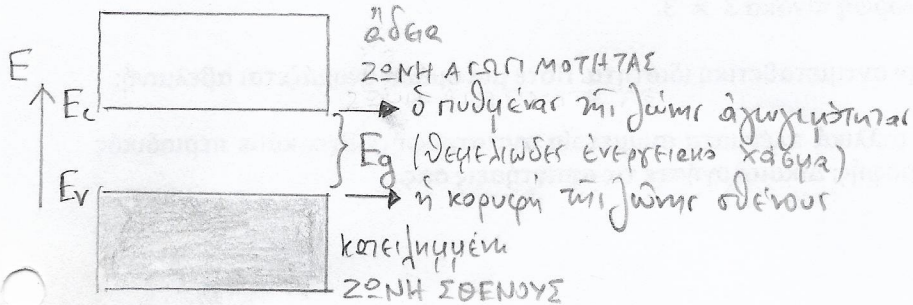 ἡ
ἄδεια
E ΖΩΝΗ ΑΓΩΓΙΜΟΤΗΤΑΣ
Ec ὁ πυθμένας τῆς ζώνης ἀγωγιμότητας
Eg (θεμελιῶδες ἐνεργειακό χάσμα)
Ev ἡ κορυφή τῆς ζώνης σθένους
κατειλημμένη
ΖΩΝΗ ΣΘΕΝΟΥΣ